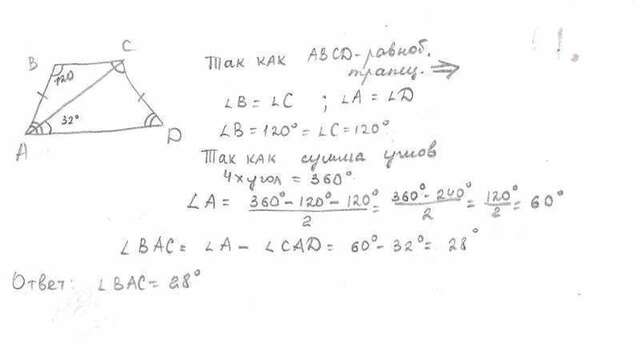 Так как ABCD-равноб.
трапец. ⇒
∠B = ∠C ; ∠A = ∠D
∠B = 120° = ∠C = 120°
Так как сумма углов
4хугол = 360°
∠A = (360° - 120° - 120°)/2 = (360° - 240°)/2 = 120°/2 = 60°
∠BAC = ∠A - ∠CAD = 60° - 32° = 28°
Ответ: ∠BAC = 28°
B
C
120
32°
A
D